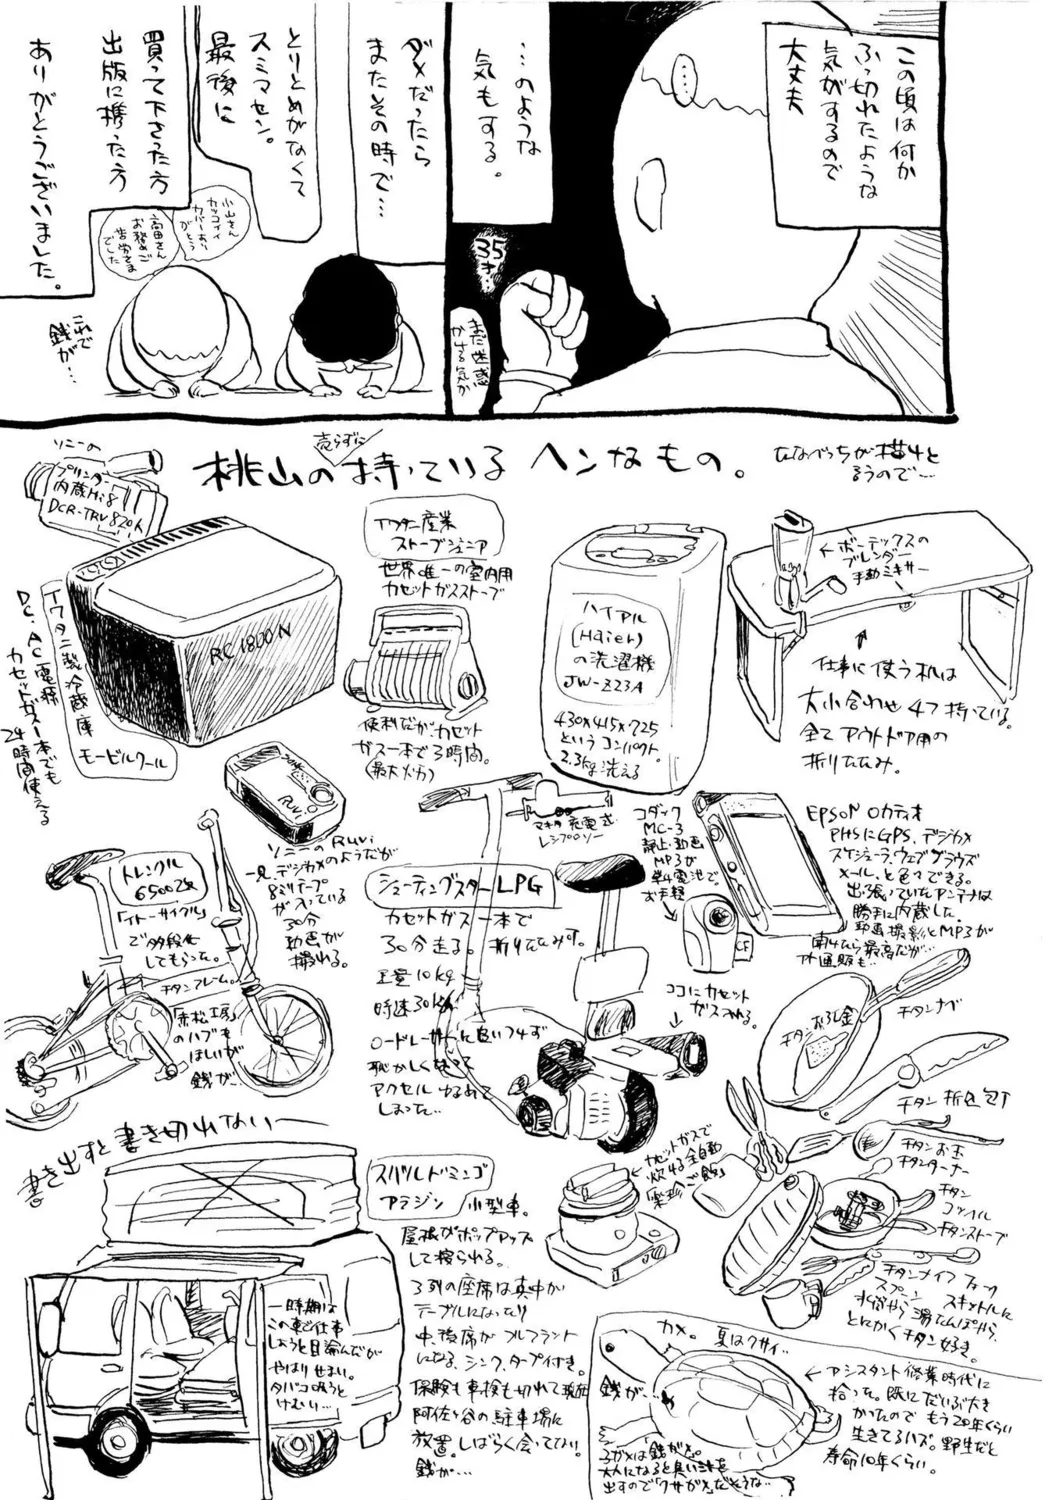 この頃は何か
ふっ切れたような
気がするので
大丈夫
…のような
気もする。
35才…
まだ迷惑
かける気か
ダメだったら
またその時で…
とりとめがなくて
スミマセン。
最後に
買って下さった方
出版に携った方
ありがとうございました。
小山さん
カッコイイ
カバーあり
がとう
高田さん
お務めご
苦労さま
でした
これで
銭が…
桃山の売らずに持っているヘンなもの。
ソニーの
プリンター
内蔵Hi8
DCR-TRV820K
RC1800N
イワタニ製冷蔵庫
モービルクール
DC、AC電源
カセットガス1本でも
24時間使える
イワタニ産業
ストーブジュニア
世界唯一の室内用
カセットガスストーブ
便利だが、カセット
ガス一本で3時間。
(最大火力)
ハイアル
(Haier)
の洗濯機
JW-Z23A
430×415×725
というコンパクト
2.3kg洗える
←ボーテックスの
ブレンダー
手動ミキサー
仕事に使う机は
大小合わせ4つ持っている。
全てアウトドア用の
折りたたみ。
ソニーのRuvi
一見、デジカメのようだが
8ミリテープ
が入っている
30分
動画が
撮れる。
トレンクル
6500改
「イトーサイクル」
で多段化
してもらった。
チタンフレーム。
「赤松工房」
のハブも
ほしいが
銭が…
マキタ充電式
レシプロソー
シューティングスターLPG
カセットガス一本で
30分走る。折りたたみす。
重量10kg
時速30km
ロードレーサーに追いつけず
恥かしくなって
アクセルゆるめて
しまった…
コダック
MC-3
静止・動画
MP3が
単4電池で
お手軽
CF
ココにカセット
ガス入れる。
EPSON ロカティオ
PHSにGPS、デジカメ
スケジューラ、ウェブブラウズ
メール、と色々できる。
出張っていたアンテナは
勝手に内蔵した。
動画撮影とMP3が
チタンナベ
チタンおろし金
チタン折包丁
チタンお玉
チタンターナー
チタン
チタンストーブ
チタンナイフ フォーク
スプーン スキットルに
水筒から湯たんぽから、
とにかくチタン好き。
カセットガスで
炊ける全自動
書き出すと書き切れない―
スバルドミンゴ
アラジン 小型車。
屋根がポップアップ
して寝られる。
3列の座席は真中が
テーブルになったり
中、後席がフルフラット
になる、シンク、タープ付き。
保険も車検も切れて現在
阿佐ヶ谷の駐車場に
放置。しばらく会ってない。
銭が…
一時期は
この車で仕事
しようと目論んだが
やはりせまい。
タバコ吸うと
けむい…
カメ。夏はクサイ…
銭が…
←アシスタント修業時代に
拾った。既にだいぶ大き
かったのでもう20年くらい
生きてるハズ。野生だと
寿命10年くらい。